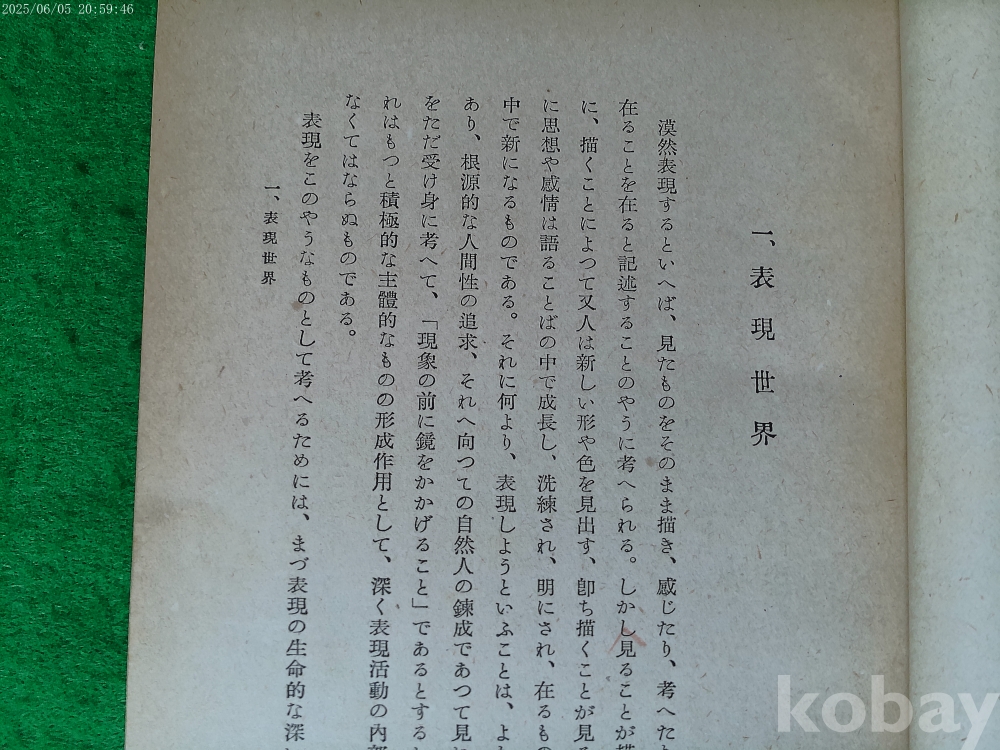 2025/06/05 20:59:46
一、表現世界
漠然表現するといへば、見たものをそのまま描き、感じたり、考へたと
在ることを在ると記述することのやうに考へられる。しかし見ることが描
に、描くことによつて又人は新しい形や色を見出す、卽ち描くことが見る
に思想や感情は語ることばの中で成長し、洗練され、明にされ、在るもの
中で新になるものである。それに何より、表現しようといふことは、より
あり、根源的な人間性の追求、それへ向つての自然人の鍊成であつて見れ
をただ受け身に考へて、「現象の前に鏡をかかげること」であるとする
れはもつと積極的な主體的なものの形成作用として、深く表現活動の內部
なくてはならぬものである。
表現をこのやうなものとして考へるためには、まづ表現の生命的な深
一、表現世界
kobay